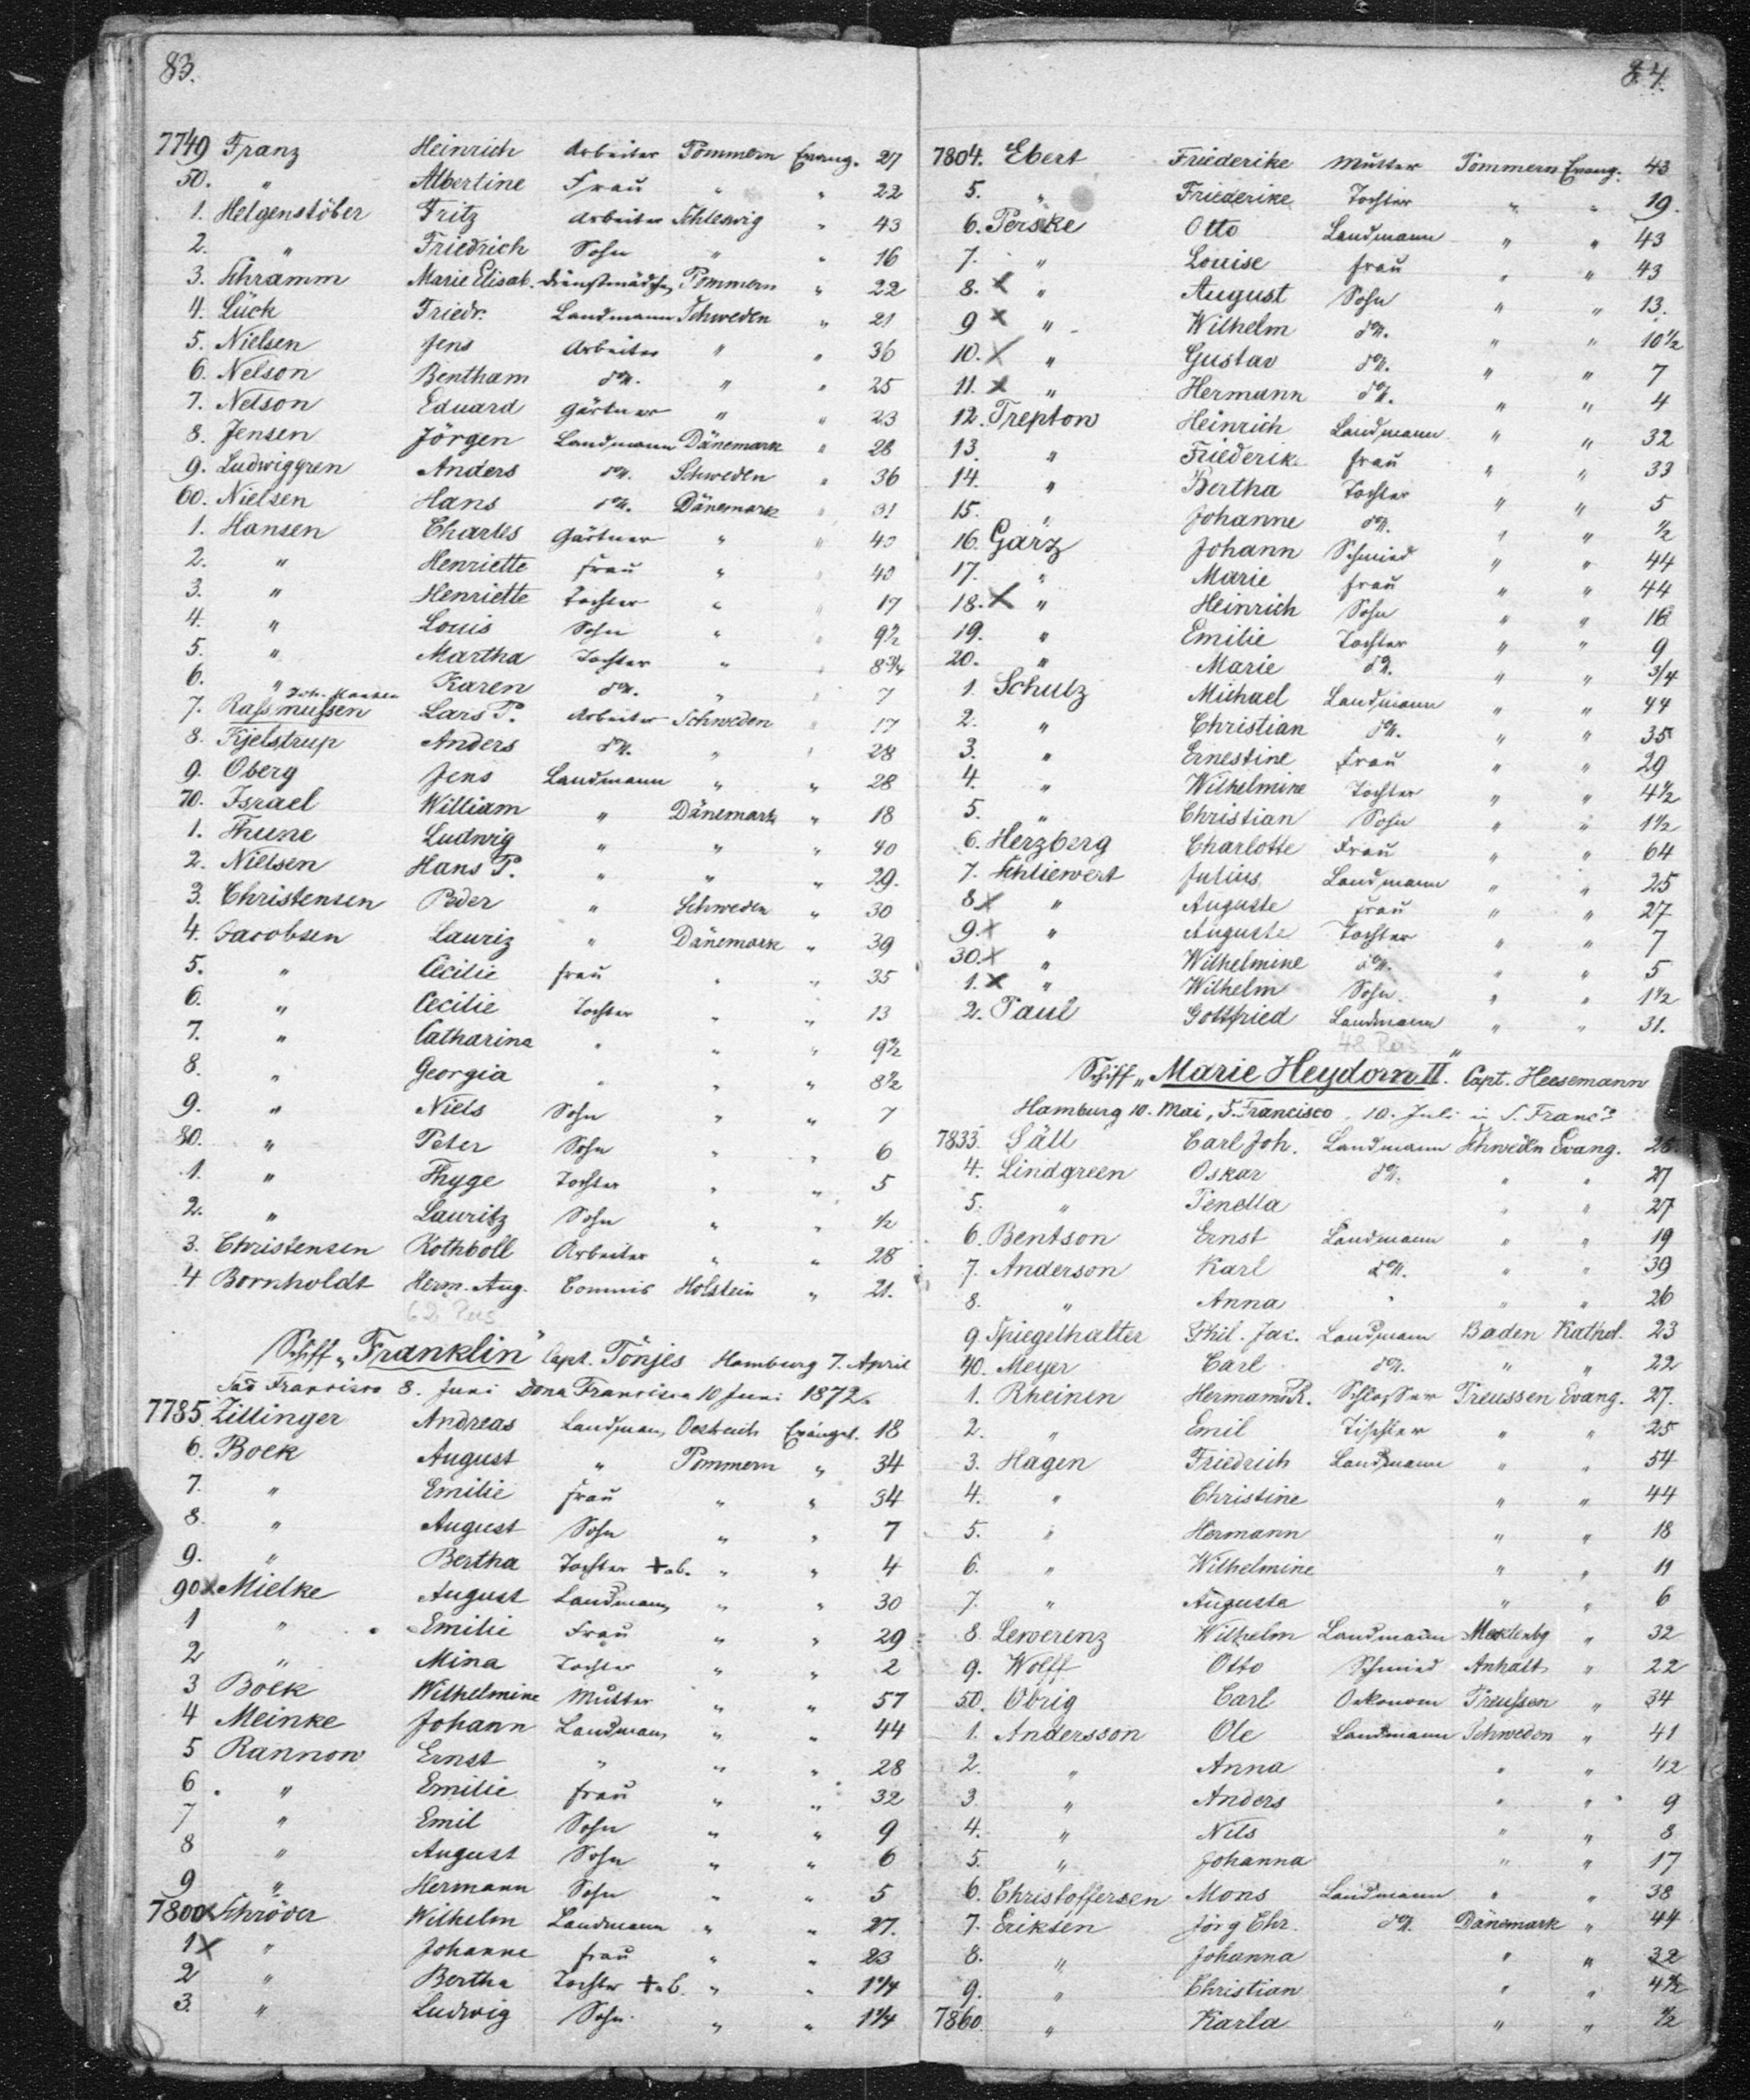 83.
7749 Franz Heinrich Arbeiter Pommern Evang. 27
50. " Albertine Frau " " 22
1. Helgenstöber Fritz Arbeiter Schleswig " 43
2. " Friedrich Sohn " " 16
3. Schramm Marie Elisab. Dienstmädchen Pommern " 22
4. Lück Friedr. Landmann Schweden " 21
5. Nielsen Jens Arbeiter " " 36
6. Nelson Bentham do. " " 25
7. Nelson Eduard Gärtner " " 23
8. Jensen Jörgen Landmann Dänemark " 28
9. Ludwiggren Anders do. Schweden " 36
60. Nielsen Hans do. Dänemark " 31
1. Hansen Charles Gärtner " " 43
2. " Henriette Frau " " 43
3. " Henriette Tochter " " 17
4. " Louis Sohn " " 9½
5. " Martha Tochter " " 8¾
6. " Karen do. " " 7
7. Rassmussen Lars P. Arbeiter Schweden " 17
8. Kjelstrup Anders do. " " 28
9. Oberg Jens Landmann " " 28
70. Israel William " Dänemark " 18
1. Thune Ludwig " " " 40
2. Nielsen Hans P. " " " 29.
3. Christensen Peder " Schweden " 30
4. Jacobsen Lauriz " Dänemark " 39
5. " Cecilie Frau " " 35
6. " Cecilie Tochter " " 13
7. " Catharina " " " 9½
8. " Georgia " " " 8½
9. " Niels Sohn " " 7
80. " Peter Sohn " " 6
1. " Thyge Tochter " " 5
2. " Lauritz Sohn " " ½
3. Christensen Rothboll Arbeiter " " 28
4 Bornholdt Herm. Aug. Commis Holstein " 21.
62 Pers
Schiff „Franklin" Capt. Tönjes Hamburg 7. April
Sao Francisco 8. Juni Dona Francisca 10 Juni 1872.
7785. Zillinger Andreas Landmann Oestreich Evangel. 18
6. Boek August " Pommern " 34
7. " Emilie Frau " " 34
8. " August Sohn " " 7
9. " Bertha Tochter + ab. " " 4
90 x Mielke August Landmann " " 30
1 " Emilie Frau " " 29
2 " Mina Tochter " " 2
3 Boek Wilhelmine Mutter " " 57
4 Meinke Johann Landmann " " 44
5 Rannow Ernst " " " 28
6 " Emilie Frau " " 32
7 " Emil Sohn " " 9
8 " August Sohn " " 6
9 " Hermann Sohn " " 5
7800 x Schröder Wilhelm Landmann " " 27.
1 x " Johanne Frau " " 23
2 " Bertha Tochter + ab. " " 1¼
3. " Ludwig Sohn " " 1¼
84.
7804. Ebert Friederike Mutter Pommern Evang. 43
5. " Friederike Tochter " " 19.
6. Perske Otto Landmann " " 43
7. " Louise Frau " " 43
8. x " August Sohn " " 13.
9 x " Wilhelm do. " " 10½
10. x " Gustav do. " " 7
11. x " Hermann do. " " 4
12. Trepton Heinrich Landmann " " 32
13. " Friederike Frau " " 33
14. " Bertha Tochter " " 5
15. " Johanne do. " " ½
16. Garz Johann Schmied " " 44
17. " Marie Frau " " 44
18. x " Heinrich Sohn " " 16
19. " Emilie Tochter " " 9
20. " Marie do. " " 3/4
1. Schulz Michael Landmann " " 44
2. " Christian do. " " 35
3. " Ernestine Frau " " 29
4. " Wilhelmine Tochter " " 4½
5. " Christian Sohn " " 1½
6. Herzberg Charlotte Frau " " 64
7. Schliewert Julius Landmann " " 25
8 x " Auguste Frau " " 27
9. x " Auguste Tochter " " 7
30. x " Wilhelmine do. " " 5
1. x " Wilhelm Sohn " " 1½
2. Paul Gottfried Landmann " " 31.
48 Pers
Schiff „Marie Heydorn II". Capt. Heesemann
Hamburg 10. Mai, S. Francisco. 10. Juli in S. Franco
7833. Säll Carl Joh. Landmann Schwedn Evang. 26
4. Lindgreen Oskar do. " " 27
5. " Penella " " 27
6. Bentson Ernst Landmann " " 19
7. Anderson Karl do. " " 39
8. " Anna " " " 26
9. Spiegelhalter Phil. Jac. Landmann Baden Kathol. 23
40. Meyer Carl do. " " 22
1. Rheinen Hermann R. Schlosser Preussen Evang. 27.
2. " Emil Tischler " " 25
3. Hagen Friedrich Landmann " " 54
4. " Christine " " 44
5. " Hermann " " 18
6. " Wilhelmine " " 11
7. " Augusta " " 6
8. Lewerenz Wilhelm Landmann Mecklenbg " 32
9. Wolff Otto Schmied Anhalt " 22
50. Obrig Carl Oekonom Preussen " 34
1. Andersson Ole Landmann Schweden " 41
2. " Anna " " 42
3. " Anders " " 9
4. " Nils " " 8
5. " Johanna " " 17
6. Christoffersen Mons Landmann " " 38
7. Eriksen Jörg Chr. do. Dänemark " 44
8. " Johanna " " 32
9. " Christian " " 4½
7860. " Karla " " ½